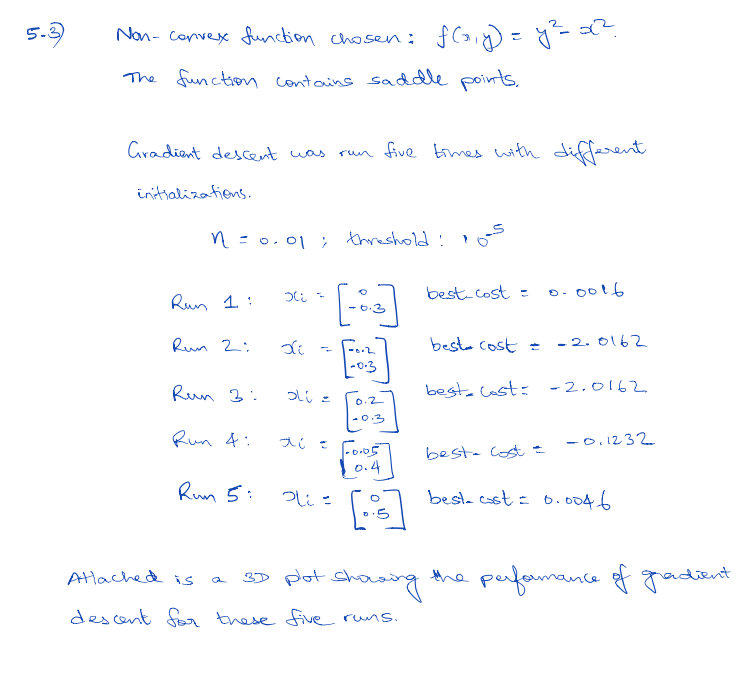 5.3) Non-convex function chosen: f(x,y) = y² - x².
The function contains saddle points.
Gradient descent was run five times with different
initializations.
η = 0.01 ; threshold : 10⁻⁵
Run 1 : xi = [0 -0.3] best_cost = 0.0016
Run 2: xi = [-0.2 -0.3] best_cost = -2.0162
Run 3: xi = [0.2 -0.3] best_cost = -2.0162
Run 4: xi = [-0.05 0.4] best_cost = -0.1232
Run 5: xi = [0 0.5] best_cost = 0.0046
Attached is a 3D plot showing the performance of gradient
descent for these five runs.